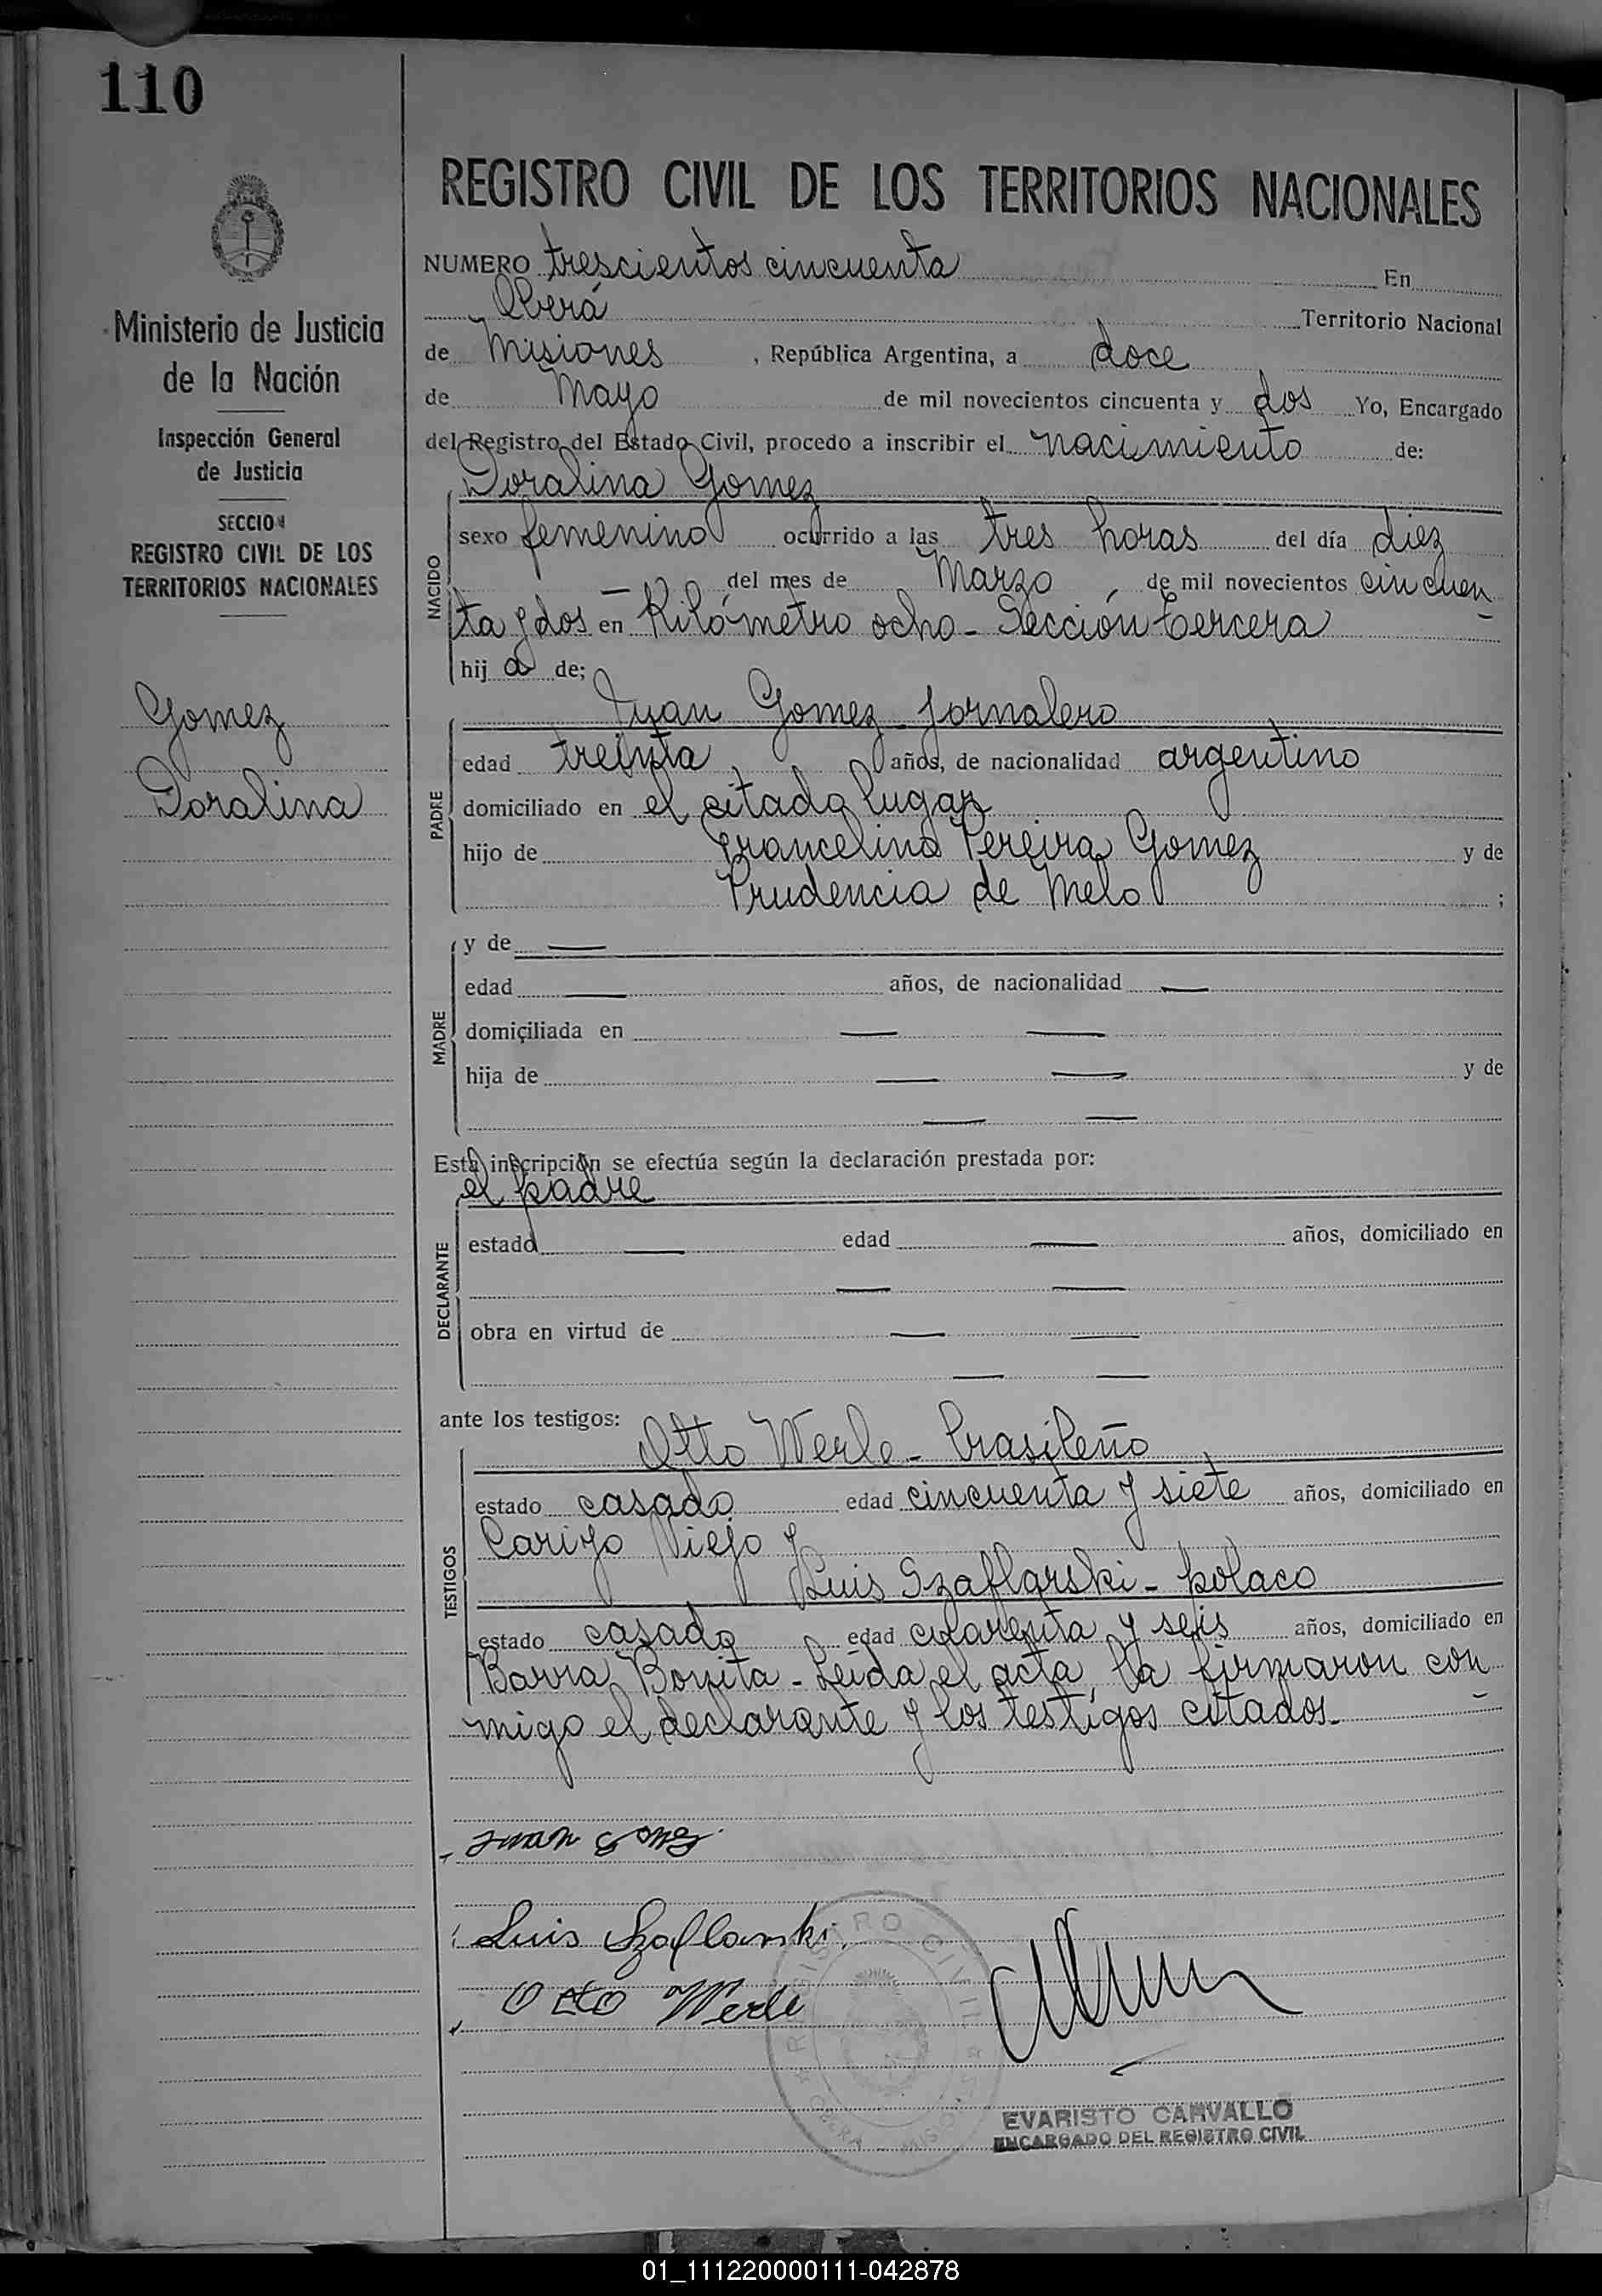 110
Ministerio de Justicia
de la Nación
Inspección General
de Justicia
SECCION
REGISTRO CIVIL DE LOS
TERRITORIOS NACIONALES
Gomez
Doralina
REGISTRO CIVIL DE LOS TERRITORIOS NACIONALES
NUMERO trescientos cincuenta En
Oberá Territorio Nacional
de Misiones , República Argentina, a doce
de Mayo de mil novecientos cincuenta y dos Yo, Encargado
del Registro del Estado Civil, procedo a inscribir el nacimiento de:
NACIDO
Doralina Gomez
sexo femenino ocurrido a las tres horas del día diez
— del mes de Marzo de mil novecientos cincuen
ta y dos en Kilómetro ocho - Sección tercera
hij a de;
PADRE
Juan Gomez - jornalero
edad treinta años, de nacionalidad argentino
domiciliado en el citado lugar
hijo de Francelino Pereira Gomez y de
Prudencia de Melo ;
MADRE
y de —
edad — años, de nacionalidad —
domiciliada en — —
hija de — — y de
— —
Esta inscripción se efectúa según la declaración prestada por:
DECLARANTE
el padre
estado — edad — años, domiciliado en
— —
obra en virtud de — —
— —
ante los testigos:
TESTIGOS
Otto Werle - brasileño
estado casado edad cincuenta y siete años, domiciliado en
Cariyo Viejo y
Luis Szaflarski - polaco
estado casado edad cuarenta y seis años, domiciliado en
Barra Bonita - Leída el acta, la firmaron con
migo el declarante y los testigos citados.
Juan Gomez
Luis Szaflarski
Otto Werle
REGISTRO CIVIL
OBERA - MISIONES
EVARISTO CARVALLO
ENCARGADO DEL REGISTRO CIVIL
01_111220000111-042878